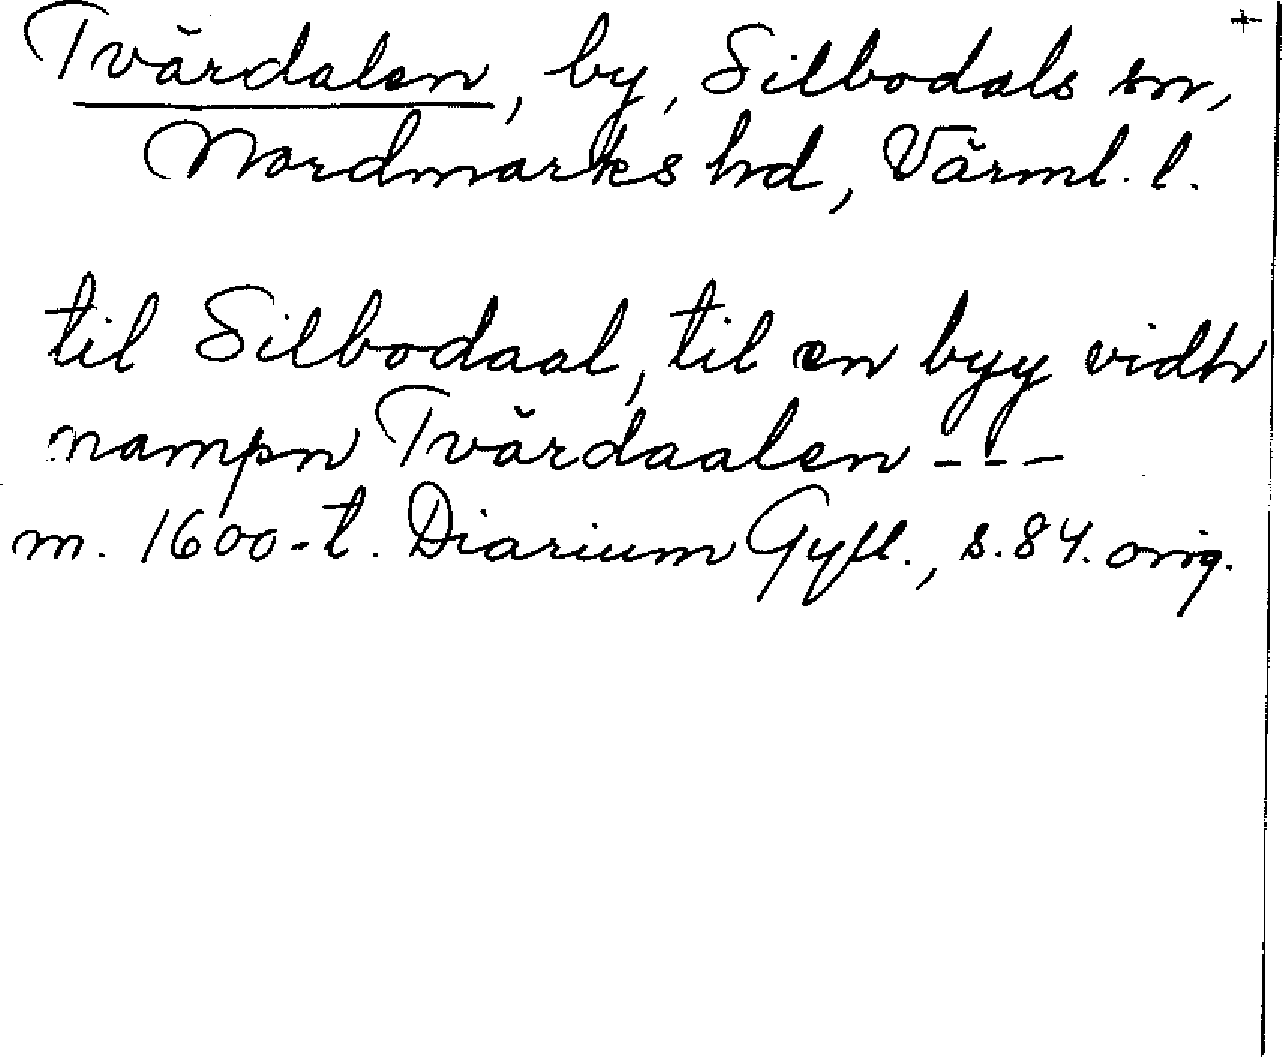 +
Tvärdalen, by, Silbodals sn,
Nordmarks hd, Värml. l.
til Silbodaal, til en byy vidh
nampn Tvärdaalen - - -
m. 1600-t. Diarium Gyll., s. 84. orig.